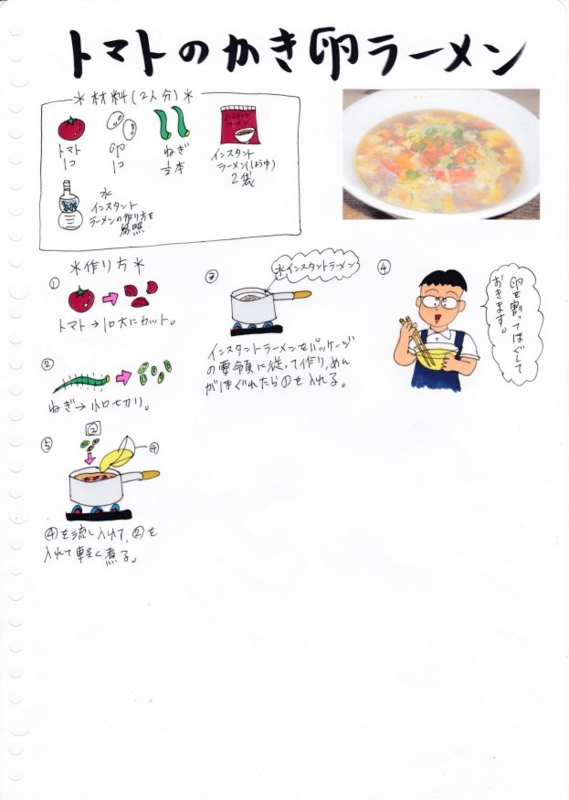 トマトのかき卵ラーメン
＊材料(2人分)＊
トマト
1コ
卵
1コ
ねぎ
インスタント
ラーメン(しょうゆ)
2袋
水
インスタント
ラーメンの作り方を
参照
＊作り方＊
①
トマト→1口大にカット。
②
ねぎ→小口切り。
③
水 インスタントラーメン
インスタントラーメンをパッケージ
の要領に従って作り、めん
がほぐれたら①を入れる。
④
卵を割ってほぐして
おきます。
⑤
②
④
④を流し入れて、②を
入れて軽く煮る。